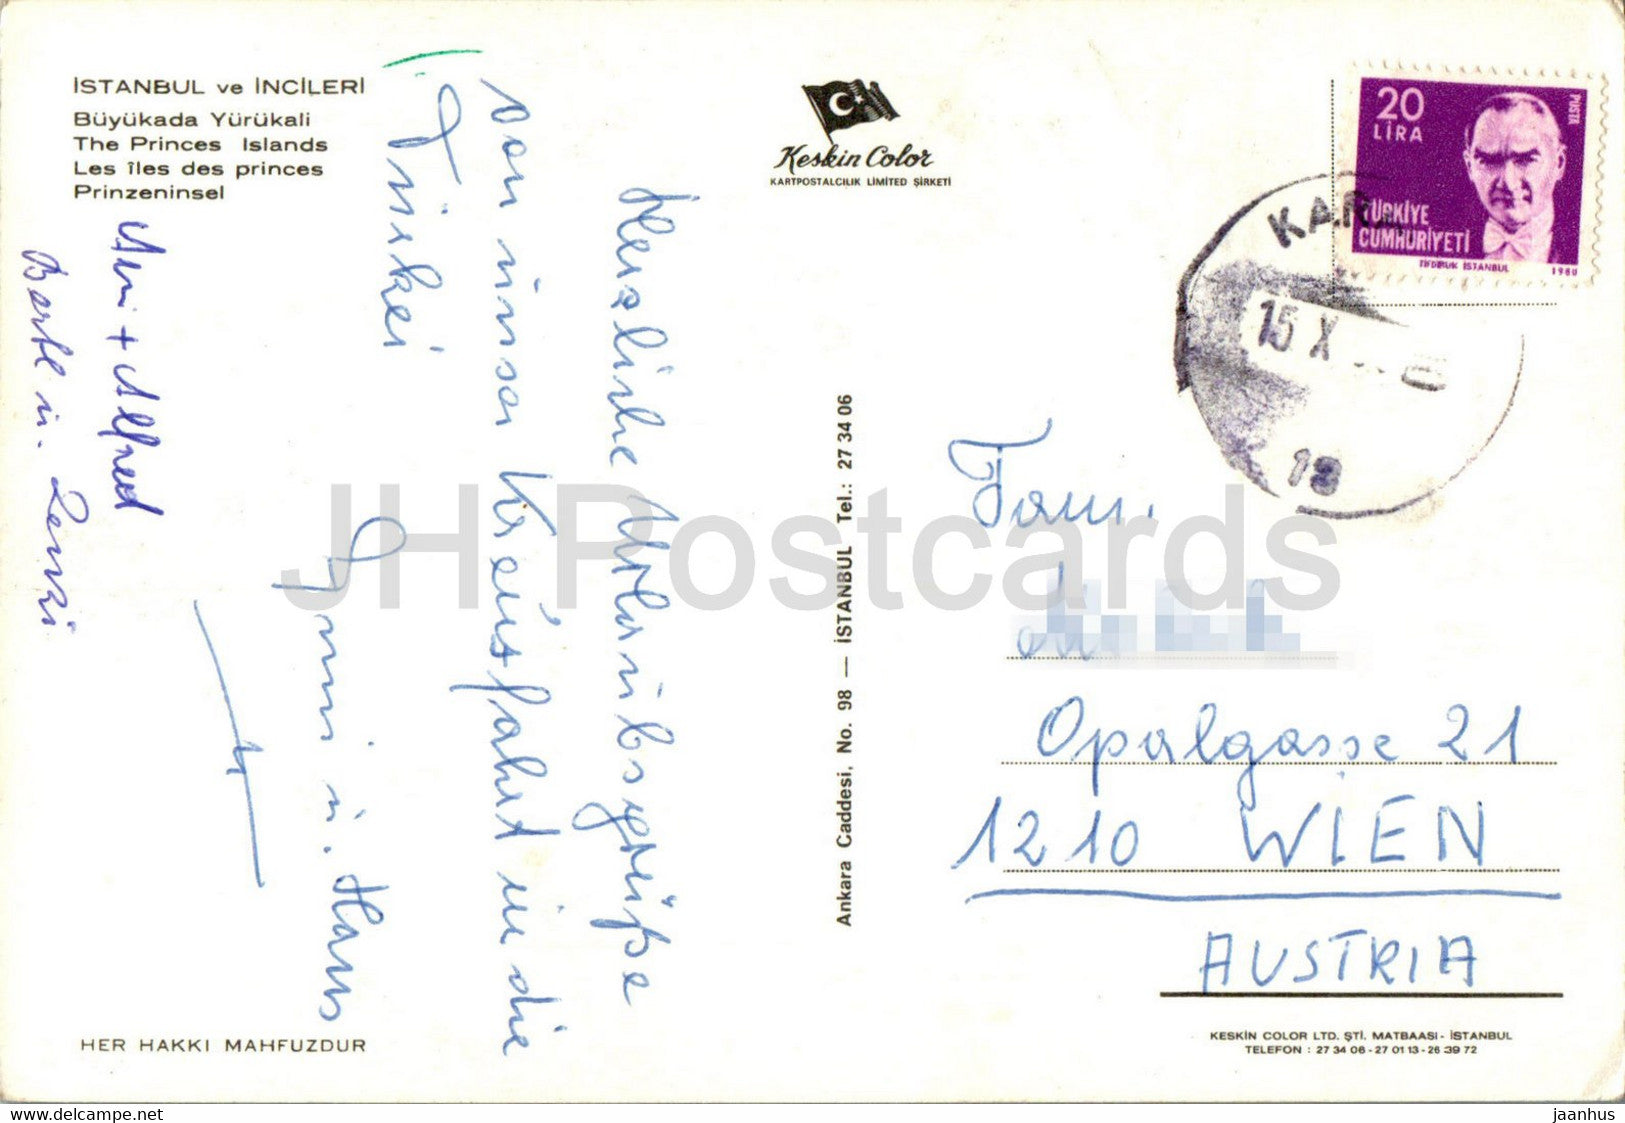 İSTANBUL ve İNCİLERİ
Büyükada Yürükali
The Princes Islands
Les îles des princes
Prinzeninsel
Keskin Color
KARTPOSTALCILIK LIMITED ŞİRKETİ
20
LİRA
POSTA
TÜRKİYE
CUMHURİYETİ
TİFDRUK İSTANBUL
1980
KARA
15 X
18
Herzliche Urlaubsgrüße
von unser Kreuzfahrt in die
Türkei
u. Hans
+ Alfred
Bertl u.
Ankara Caddesi, No. 98 — İSTANBUL Tel.: 27 34 06
Fam.
Opalgasse 21
1210 WIEN
AUSTRIA
HER HAKKI MAHFUZDUR
KESKİN COLOR LTD. ŞTİ. MATBAASI - İSTANBUL
TELEFON : 27 34 06 - 27 01 13 - 26 39 72
JH Postcards
www.delcampe.net
jaanhus